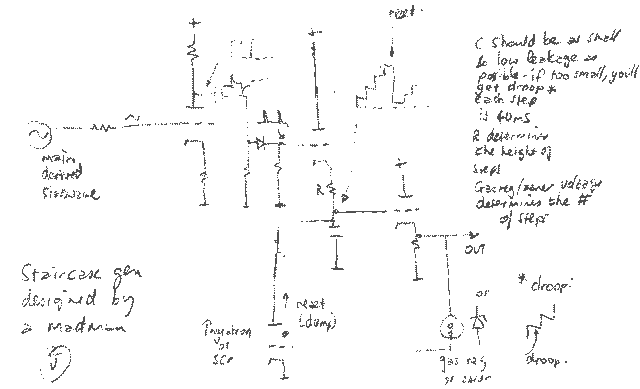 reset.
C should be as small
& low leakage as
possible - if too small, you'll
get droop*
Each step
is 40ms
R determines
the height of
steps
Gas reg/zener voltage
determines the #
of steps
main
derived
sinewave
R
OUT
or
* droop:
droop.
gas reg
or zener
reset
(dump)
Thyratron
or
SCR
Staircase gen
designed by
a madman